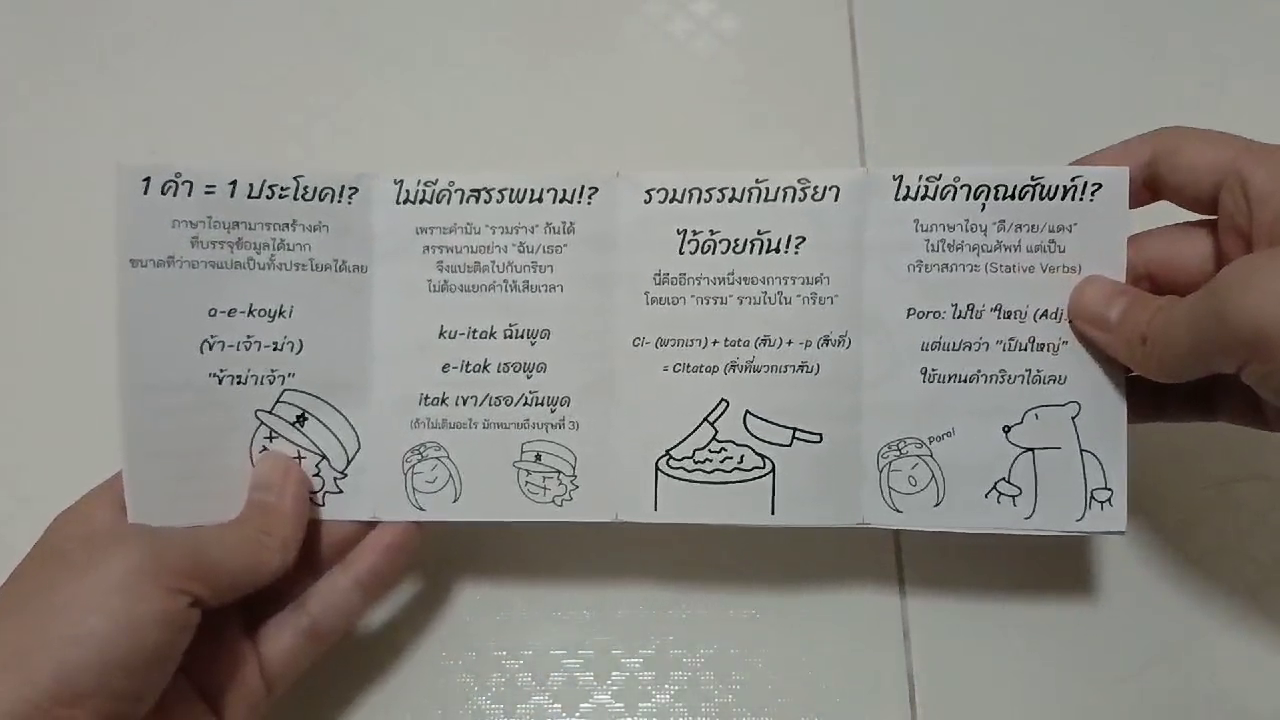 1 คำ = 1 ประโยค!?
ภาษาไอนุสามารถสร้างคำ
ที่บรรจุข้อมูลได้มาก
ขนาดที่ว่าอาจแปลเป็นทั้งประโยคได้เลย
a-e-koyki
(ข้า-เจ้า-ฆ่า)
"ข้าฆ่าเจ้า"
ไม่มีคำสรรพนาม!?
เพราะคำมัน "รวมร่าง" กันได้
สรรพนามอย่าง "ฉัน/เธอ"
จึงแปะติดไปกับกริยา
ไม่ต้องแยกคำให้เสียเวลา
ku-itak ฉันพูด
e-itak เธอพูด
itak เขา/เธอ/มันพูด
(ถ้าไม่เติมอะไร มักหมายถึงบุรุษที่ 3)
รวมกรรมกับกริยา
ไว้ด้วยกัน!?
นี่คืออีกร่างหนึ่งของการรวมคำ
โดยเอา "กรรม" รวมไปใน "กริยา"
Ci- (พวกเรา) + tata (สับ) + -p (สิ่งที่)
= Citatap (สิ่งที่พวกเราสับ)
ไม่มีคำคุณศัพท์!?
ในภาษาไอนุ "ดี/สวย/แดง"
ไม่ใช่คำคุณศัพท์ แต่เป็น
กริยาสภาวะ (Stative Verbs)
Poro: ไม่ใช่ "ใหญ่ (Adj.)
แต่แปลว่า "เป็นใหญ่"
ใช้แทนคำกริยาได้เลย
Poro!